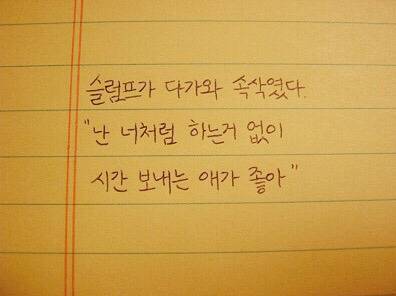 슬럼프가 다가와 속삭였다.
"난 너처럼 하는거 없이
시간 보내는 애가 좋아"